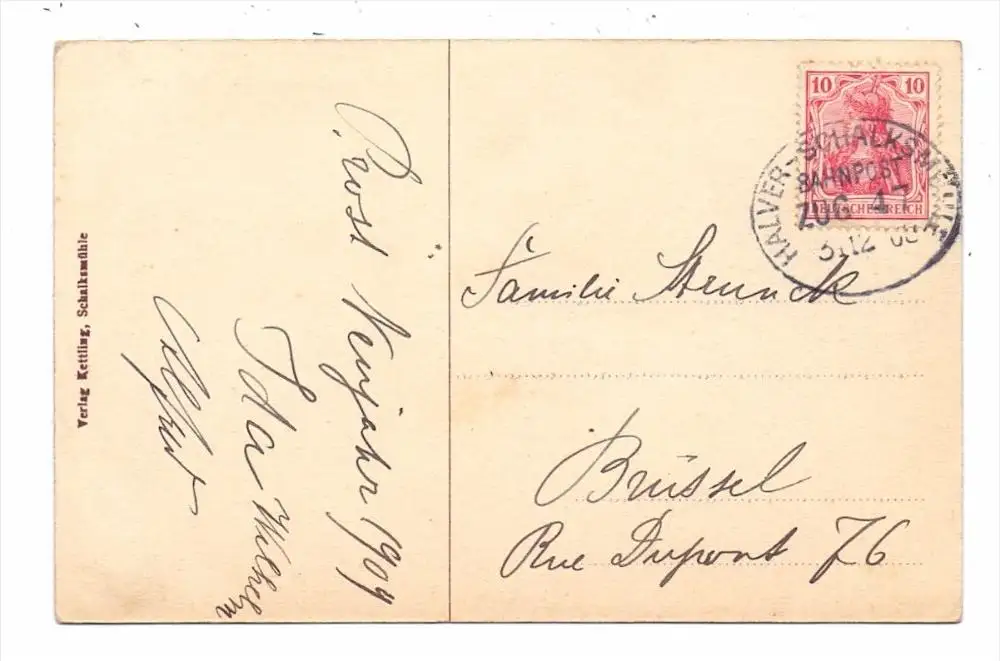 Verlag Kettling, Schalksmühle
Prost Neujahr 1909
Ida Wilhelm
Alfred
10 10
DEUTSCHES REICH
HALVER-SCHALKSMÜHLE
BAHNPOST
ZUG 47
31.12 08
Familie Strunck
Brüssel
Rue Dupont 76